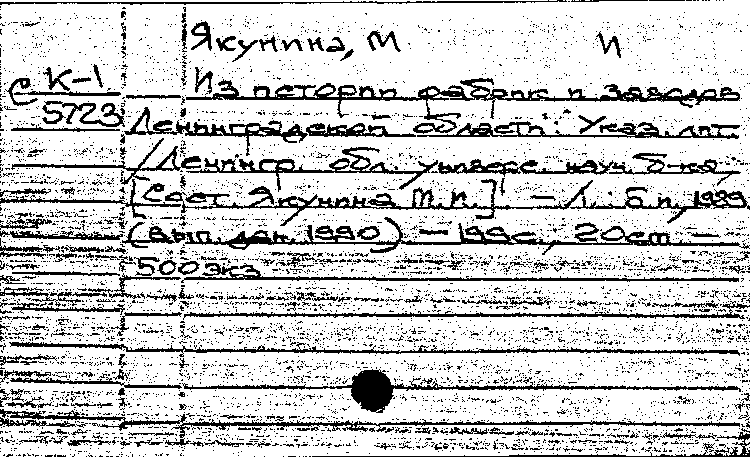 Якунина, М И
С К-1 Из истории фабрик и заводов
5723 Ленинградской области: Указ. лит.
/Ленингр. обл. универс. науч. б-ка,
[Сост. Якунина М.И.]. — Л.: Б.и., 1989
(вып. дан. 1990) — 199с., 20см. —
500экз